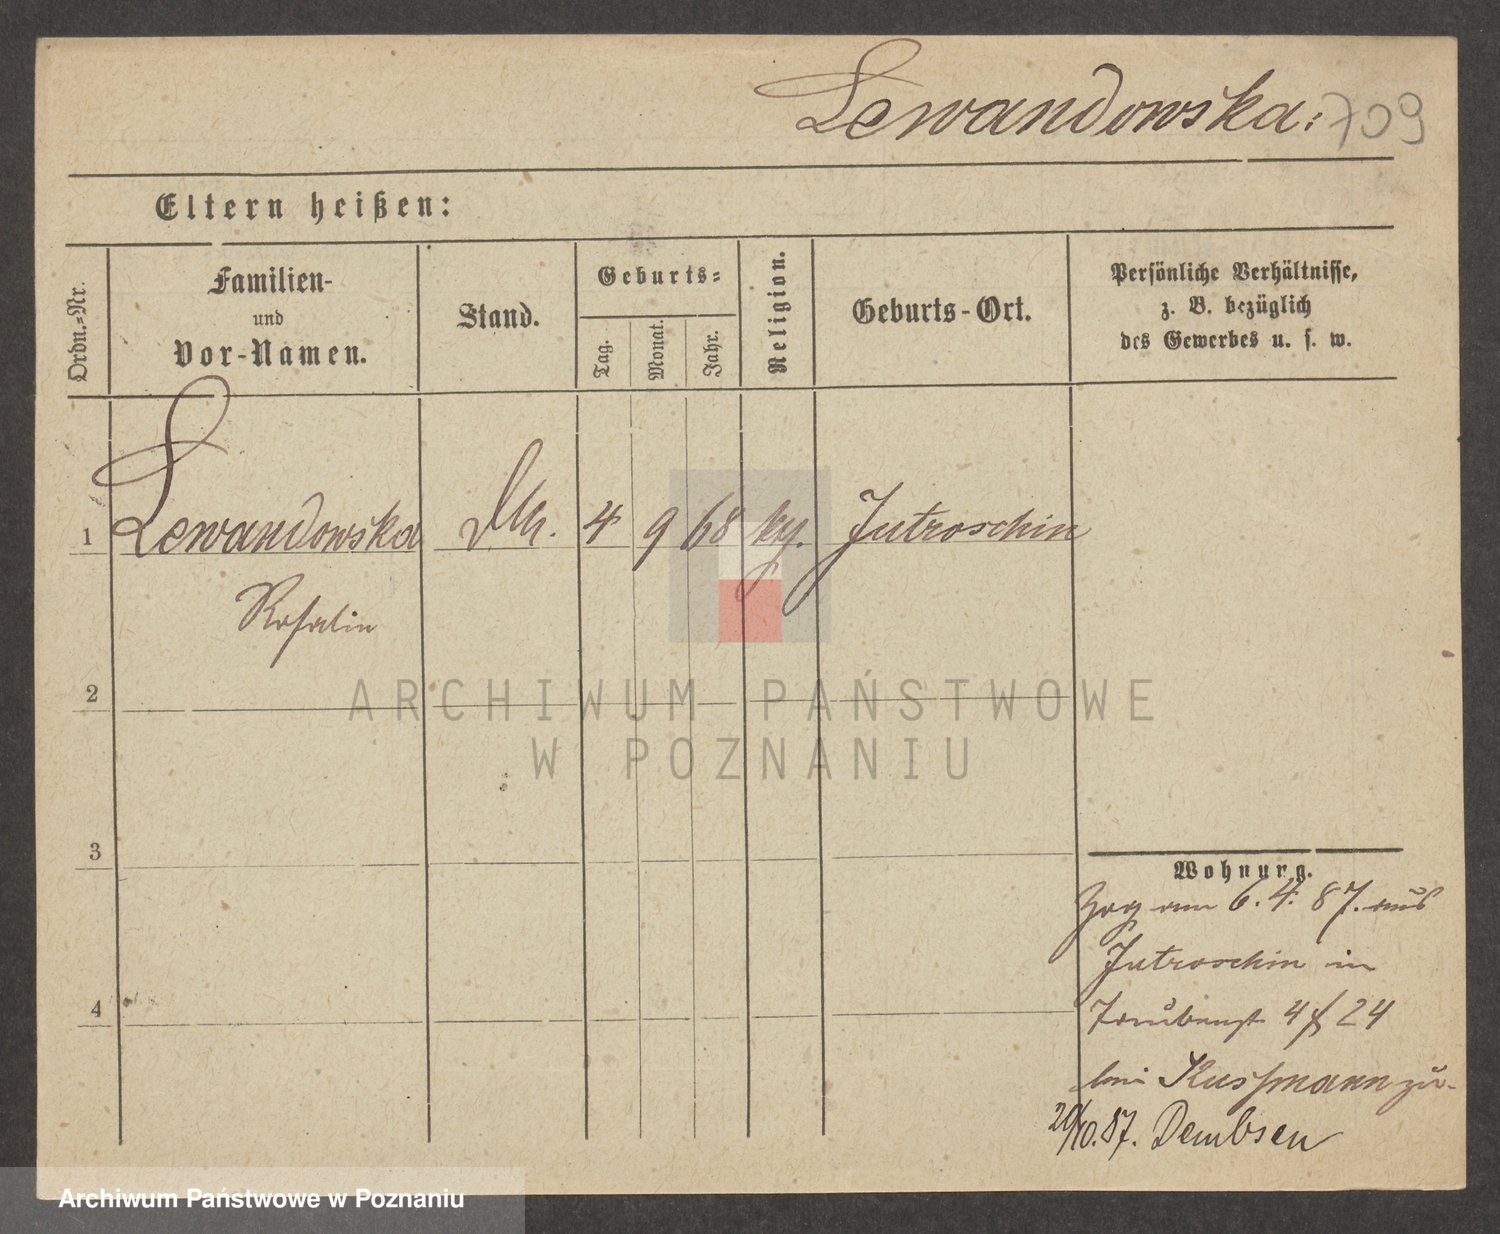 Lewandowska: 709
Eltern heißen:
Ordn.-Nr.
Familien-
und
Vor-Namen.
Stand.
Geburts-
Tag.
Monat.
Jahr.
Religion.
Geburts-Ort.
Persönliche Verhältnisse,
z. B. bezüglich
des Gewerbes u. s. w.
1 Lewandowska 4 9 68 Jutroschin
Rosalin
2
3
4
Wohnung.
Zog am 6. 4. 87. aus
Jutroschin in
4 24
bei Kussmann zu-
20/10. 87. Dembsen
ARCHIWUM PAŃSTWOWE
W POZNANIU
Archiwum Państwowe w Poznaniu